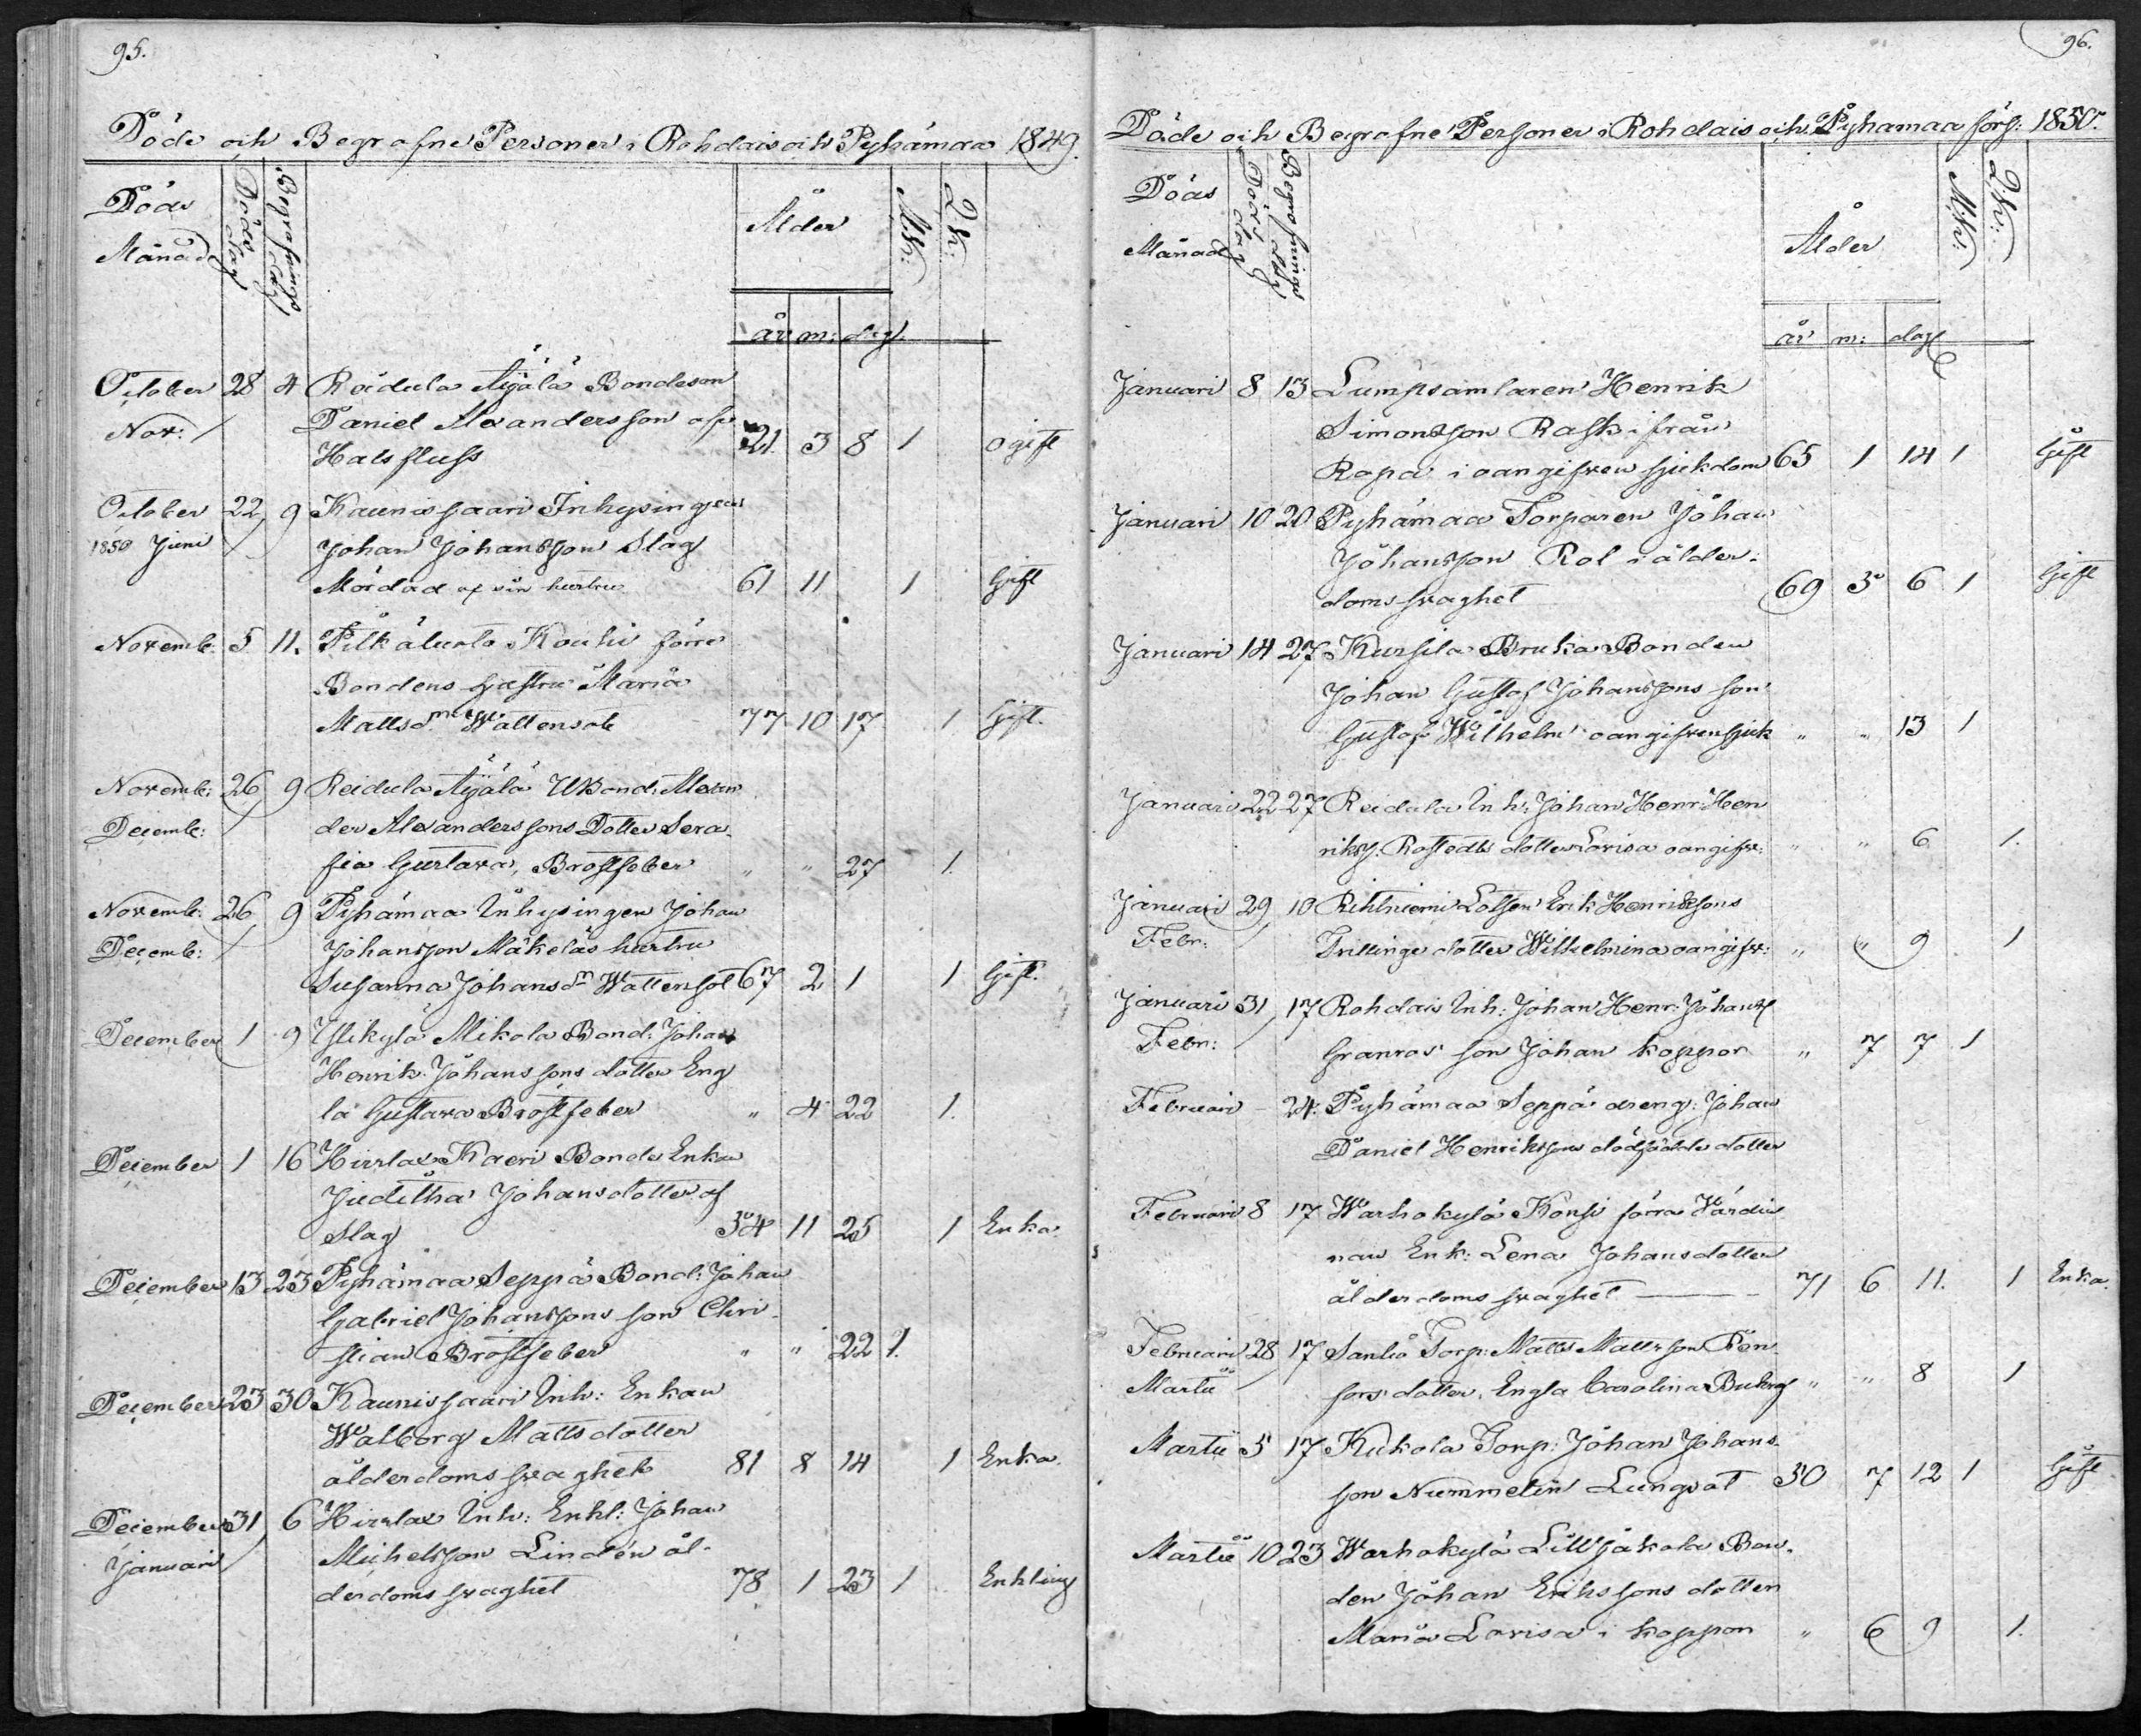 95.
Döde och Begrafne Personer i Rohdais och Pyhämaa 1849.
Döds Månad
Döds dag
Begrafnings dag
Ålder
M.K:
Q.K:
år m: dag.
October 28 4 Reidula Äijälä Bondeson
Nov: Daniel Alexandersson af
Halsfluss 21 3 8 1 ogift
October 22 9 Kaunissaari Inhysingen
1850 Juni Johan Johansson Slag
Mördad af sin hustru 61 11 1 Gift
Novemb: 5 11. Pitkäluoto Kouhi förre
Bondens hustru Maria
Mattsdr Wattensot 77 10 17 1 Gift.
Novemb: 26 9 Reidula Äijälä Bond: Alexan
Decemb: der Alexanderssons Dotter Sera-
fia Gustava, Bröstfeber " " 27 1.
Novemb: 26 9 Pyhämaa Inhysingen Johan
Decemb: Johansson Mäkeläs hustru
Susanna Johansdr Wattensot 67 2 1 1 Gift.
December 1 9 Ylikylä Mikola Bond: Johan
Henrik Johanssons dotter Eng
la Gustava Bröstfeber " 4 22 1.
December 1 16 Hirslax Kaeri Bonde Enkan
Juditha Johansdotter af
Slag 34 11 25 1 Enka
December 13 23 Pyhämaa Seppä Bond: Johan
Gabriel Johanssons son Chri-
stian Bröstfeber " " 22 1.
December 23 30 Kaunissaari Inh: Enkan
Walborg Mattsdotter
ålderdomssvaghet 81 8 14 1 Enka.
December 31 6 Hirslax Inh: Enkl: Johan
Januari Michelsson Lindén ål-
derdomssvaghet 78 1 23 1 Enkling
96.
Döde och Begrafne Personer i Rohdais och Pyhämaa förs: 1850.
Döds Månad
Döds dag
Begrafnings dag
Ålder
M.K:
Q.K:
år m: dag
Januari 8 13 Lumpsamlaren Henrik
Simonsson Rask ifrån
Ropa i oangifven sjukdom 65 1 14 1 Gift
Januari 10 20 Pyhämaa Torparen Johan
Johansson Rol i ålder-
domssvaghet 69 3 6 1 Gift
Januari 14 27 Kursila Bruka Bonden
Johan Gustaf Johanssons son
Gustaf Wilhelm oangifven sjuk " " 13 1
Januari 22 27 Reidula Inh: Johan Henr: Hen
riks: Rostedts dotter Lovisa oangifv: " " 6 1.
Januari 29 10 Rihtniemi Lotsen Erik Henrikssons
Febr: Trillinge dotter Wilhelmina oangifv: " " 9 1
Januari 31 17 Rohdais Inh: Johan Henr: Johans:
Febr: Granros son Johan koppor " 7 7 1
Februari - 24. Pyhämaa Seppä dreng: Johan
Daniel Henrikssons dödfödde dotter
Februari 8 17 Warhokylä Konsi förra Värdin
nan Enk: Lena Johansdotter
ålderdomssvaghet 71 6 11. 1 Enka.
Februari 28 17 Santio Torp: Matts Mattsson Fön
Martii fors dotter, Engla Carolina " " 8 1
Martii 5 17 Kukola Torp: Johan Johans-
son Nummelin Lungsot 50 7 12 1 Gift
Martii 10 23 Warhokylä Lilljakola Bon-
den Johan Erikssons dotter
Maria Lovisa i koppor " 6 9 1.